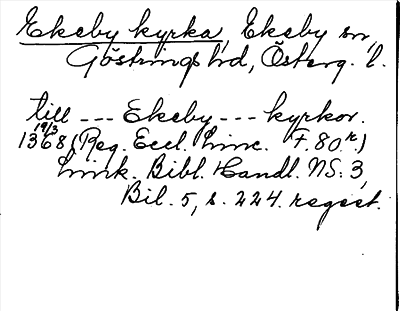 Ekeby kyrka, Ekeby sn,
Göstrings hd, Österg. l.
till --- Ekeby --- kyrkor.
19/3
1368 (Reg. Eccl. Linc. F. 80 r.)
Link. Bibl. Handl. NS: 3,
Bil. 5, s. 224. regest.